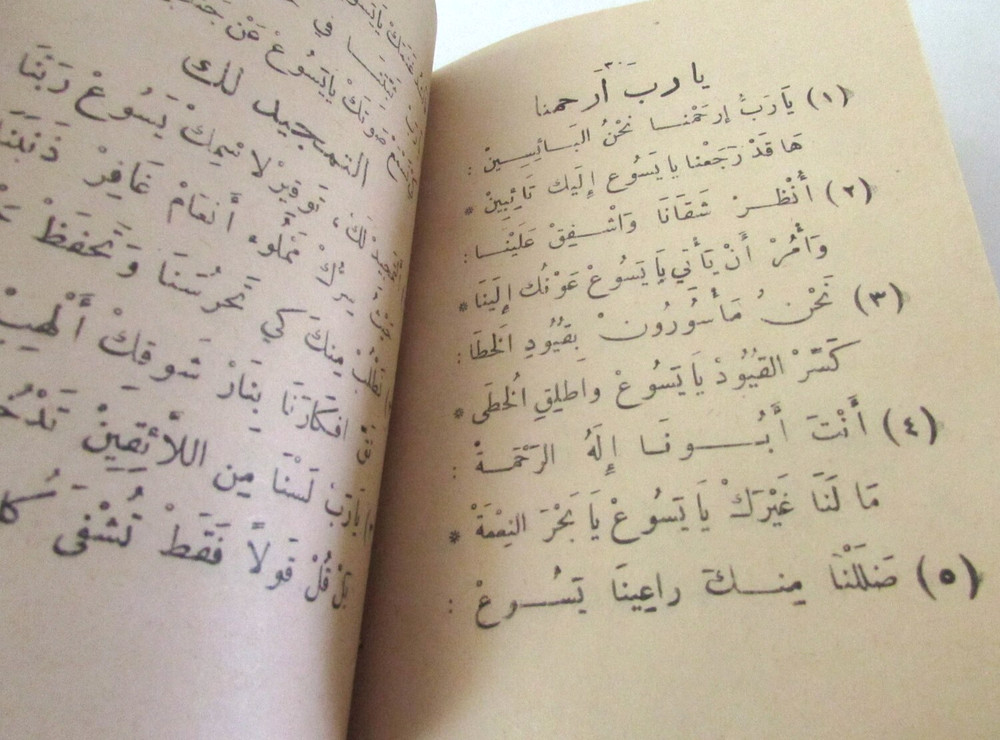 يا رب ارحمنا
(١) يَا رَبُّ إِرْحَمْنَا نَحْنُ البَائِسِينْ :
هَا قَدْ رَجَعْنَا يَا يَسُوع إِلَيكَ تَائِبِينْ *
(٢) أُنْظُرْ شَقَانَا وَاشْفِقْ عَلَيْنَا :
وَأْمُرْ أَنْ يَأْتِي يَا يَسُوعْ عَوْنُك إِلَينَا *
(٣) نَحْنُ مَأْسُورُونْ بِقُيُودِ الخَطَا :
كَسِّرْ القُيُودْ يَا يَسُوعْ وَاطلِقِ الخُطَى *
(٤) أَنْتَ أَبُونَا إِلَهُ الرَحْمَةْ :
مَا لَنَا غَيْرَكْ يَا يَسُوعْ يَا بَحْرَ النِعْمَةْ *
(٥) ضَلَلْنَا مِنكَ رَاعِينَا يَسُوعْ :
صَوتَكْ يَايَسُوعْ عَنْ
التمجيد لك
لَكَ، تَوقِيرْ لاسْمِكْ يَسُوعْ رَبَّنَا
بِرُّكْ مَملُوء أَنعَامْ غَافِرْ ذَنْبَنَا
نَطْلُبْ مِنكَ كَي تَحرُسنَا وَتَحفَظْ
افكَارَنَا بِنَارْ شَوقِكْ أَلْهِبْ
يَارَبْ لَسْنَا مِن اللاَّئِقِينْ
بَلْ قُلْ قَولاً فَقَطْ تُشْفَى